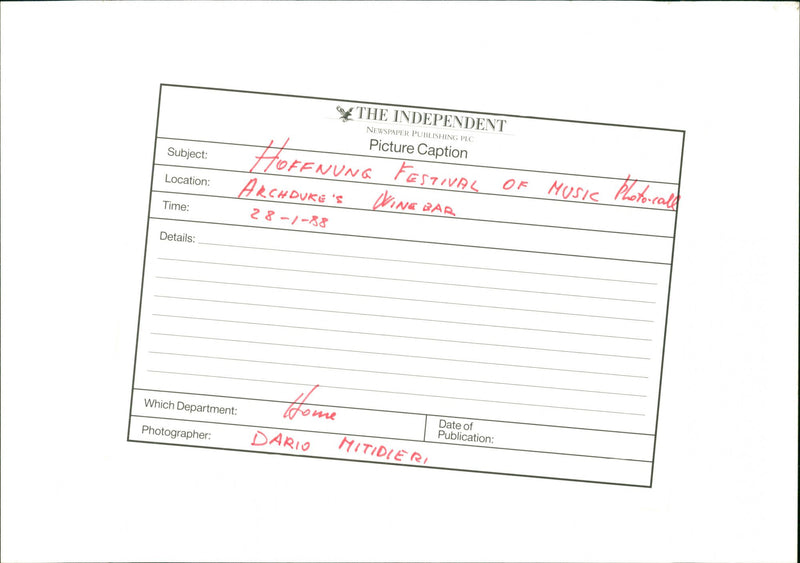 THE INDEPENDENT
NEWSPAPER PUBLISHING PLC
Picture Caption
Subject: HOFFNUNG FESTIVAL OF MUSIC Photo-call
Location: ARCHDUKE'S WINEBAR
Time: 28-1-88
Details:
Which Department: Home
Date of
Publication:
Photographer: DARIO MITIDIERI